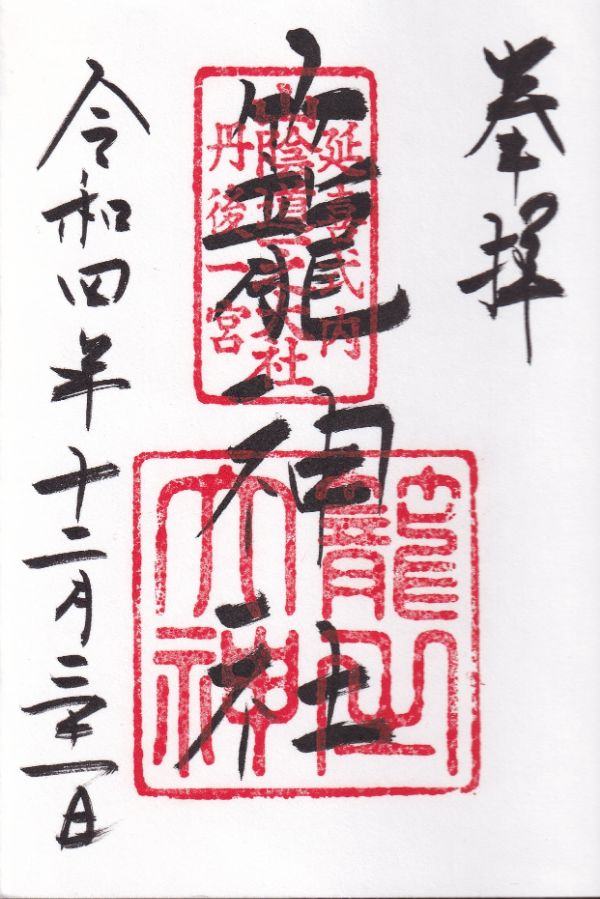 奉拝
延喜式内
山陰道一之大社
丹後一宮
籠神社
籠之
大神
令和四年十二月三十一日